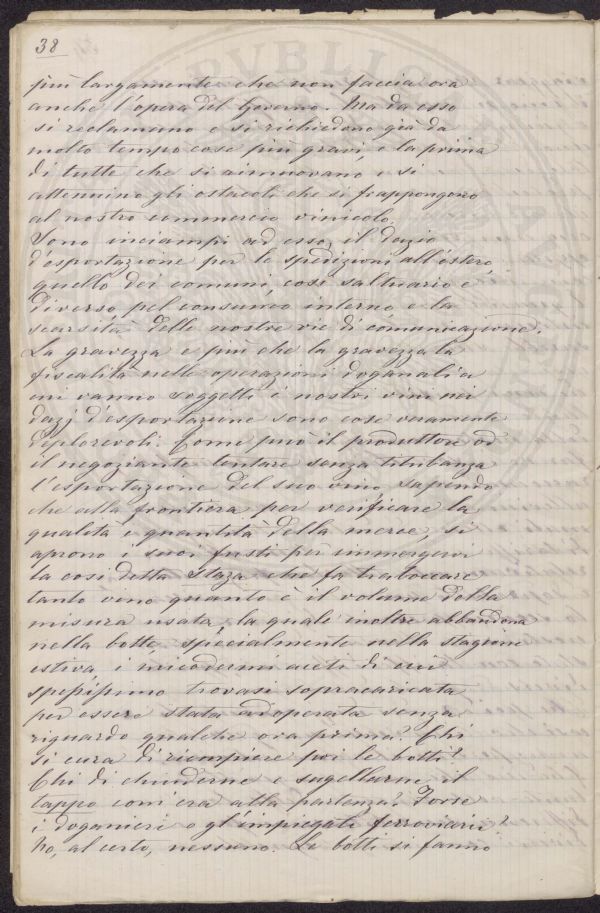 38
più largamente che non faccia ora
anche l'opera del Governo. Ma da esso
si reclamano e si richiedono già da
molto tempo cose più gravi, e la prima
di tutte che si rimuovano e si
attenuino gli ostacoli che si frappongono
al nostro commercio vinicolo.
Sono inciampi ad esso, il dazio
d'esportazione per le spedizioni all'estero,
quello dei comuni, così saltuario e
diverso, pel consumo interno e la
scarsità delle nostre vie di comunicazione.
La gravezza e più che la gravezza la
fiscalità nelle operazioni doganali a
cui vanno soggetti i nostri vini nei
dazj d'esportazione sono cose veramente
deplorevoli. Come può il produttore od
il negoziante tentare senza titubanza
l'esportazione del suo vino sapendo
che alla frontiera per verificare la
qualità e quantità della merce, si
aprono i suoi fusti per immergervi
la così detta staza che fa traboccare
tanto vino quanto è il volume della
misura usata, la quale inoltre abbandona
nella botte, specialmente nella stagione
estiva, i micodermi aceti di cui
spessissimo trovasi sopracaricata
per essere stata adoperata senza
riguardo qualche ora prima? Chi
si cura di riempiere poi le botti?
Chi di chiuderne e sugellarne il
tappo com'era alla partenza? Forse
i doganieri o gl'impiegati ferroviari?
No, al certo, nessuno. Le botti si fanno